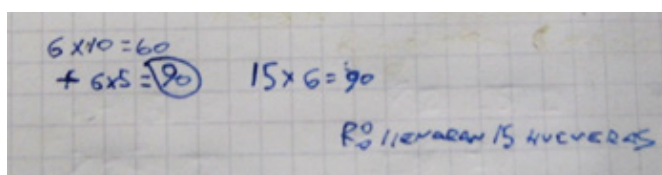 6 x 10 = 60
+ 6x5 = 90 15 x 6 = 90
Rº: llenaran 15 hueveras